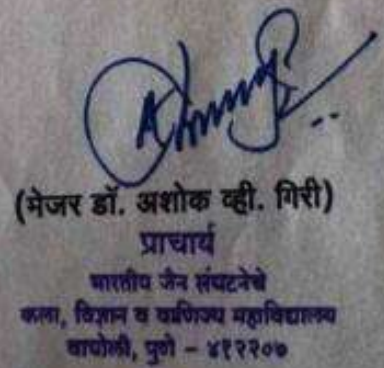 (मेजर डॉ. अशोक व्ही. गिरी)
प्राचार्य
भारतीय जैन संघटनेचे
कला, विज्ञान व वाणिज्य महाविद्यालय
वाघोली, पुणे – ४१२२०७